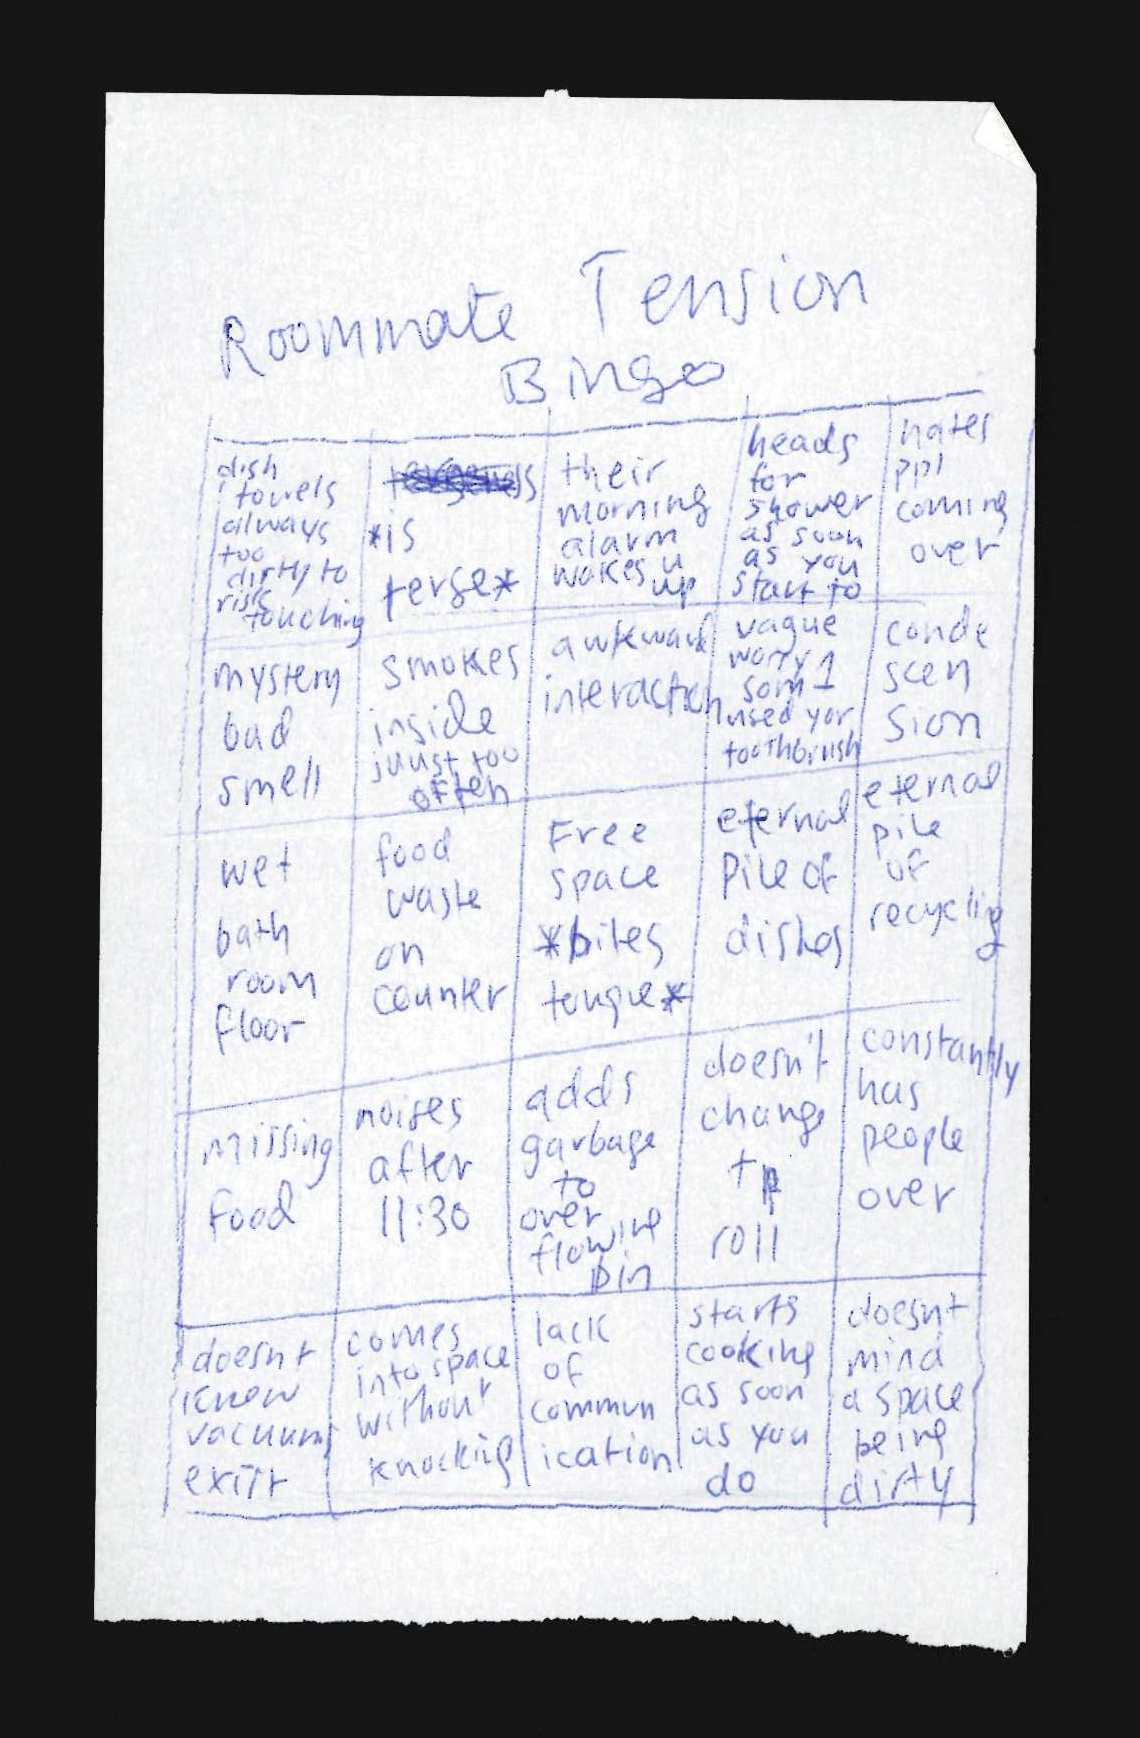 Roommate Tension
Bingo
dish
towels
always
too
dirty to
risk
touching
*is
terse*
their
morning
alarm
wakes u
up
heads
for
shower
as soon
as you
start to
hates
ppl
coming
over
mystery
bad
smell
smokes
inside
juust too
often
awkward
interaction
vague
worry
som1
used yor
toothbrush
conde
scen
sion
wet
bath
room
floor
food
waste
on
counter
Free
space
*bites
tongue*
eternal
pile of
dishes
eternal
pile
of
recycling
missing
food
noises
after
11:30
adds
garbage
to
over
flowing
bin
doesn't
change
tp
roll
constantly
has
people
over
doesnt
know
vacuums
exist
comes
into space
without
knocking
lack
of
commun
ication
starts
cooking
as soon
as you
do
doesnt
mind
a space
being
dirty